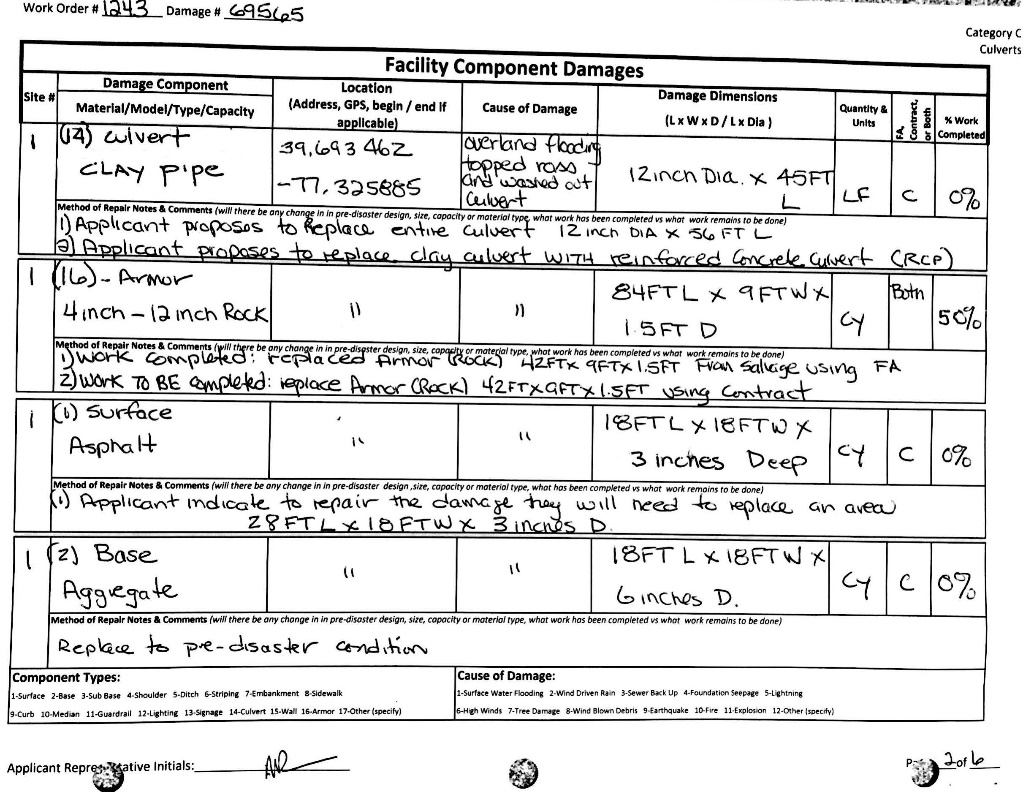 Work Order # 1243 Damage # 69565
Category C
Culverts
Facility Component Damages
Site #
Damage Component
Material/Model/Type/Capacity
Location
(Address, GPS, begin / end if
applicable)
Cause of Damage
Damage Dimensions
(L x W x D / L x Dia )
Quantity &
Units
FA,
Contract,
or Both
% Work
Completed
1
(14) Culvert
CLAY Pipe
39.693462
-77.325885
overland flooding
topped
and washed out
Culvert
12inch Dia. x 45FT
L
LF
C
0%
Method of Repair Notes & Comments (will there be any change in in pre-disaster design, size, capacity or material type, what work has been completed vs what work remains to be done)
1) Applicant proposes to Replace entire culvert 12 inch DIA x 56 FT L
2) Applicant proposes to replace clay culvert WITH reinforced Concrete Culvert (RCP)
1
(16) - Armor
4 inch - 12 inch Rock
"
"
84FT L x 9FTW x
1.5FT D
CY
Both
50%
Method of Repair Notes & Comments (will there be any change in in pre-disaster design, size, capacity or material type, what work has been completed vs what work remains to be done)
1) Work completed: replaced Armor (Rock) 42FTx 9FTx 1.5FT From Salvage using FA
2) Work TO BE completed: replace Armor (Rock) 42FTx9FTx1.5FT using Contract
1
(1) Surface
Asphalt
"
"
18FT L x 18FTW x
3 inches Deep
CY
C
0%
Method of Repair Notes & Comments (will there be any change in in pre-disaster design ,size, capacity or material type, what has been completed vs what work remains to be done)
(1) Applicant indicate to repair the damage they will need to replace an area
28FT L x 18 FTW x 3 inches D.
1
(2) Base
Aggregate
"
"
18FT L x 18FTW x
6 inches D.
CY
C
0%
Method of Repair Notes & Comments (will there be any change in in pre-disaster design, size, capacity or material type, what work has been completed vs what work remains to be done)
Replace to pre-disaster condition
Component Types:
1-Surface 2-Base 3-Sub Base 4-Shoulder 5-Ditch 6-Striping 7-Embankment 8-Sidewalk
9-Curb 10-Median 11-Guardrail 12-Lighting 13-Signage 14-Culvert 15-Wall 16-Armor 17-Other (specify)
Cause of Damage:
1-Surface Water Flooding 2-Wind Driven Rain 3-Sewer Back Up 4-Foundation Seepage 5-Lightning
6-High Winds 7-Tree Damage 8-Wind Blown Debris 9-Earthquake 10-Fire 11-Explosion 12-Other (specify)
Applicant Representative Initials:
2 of 6